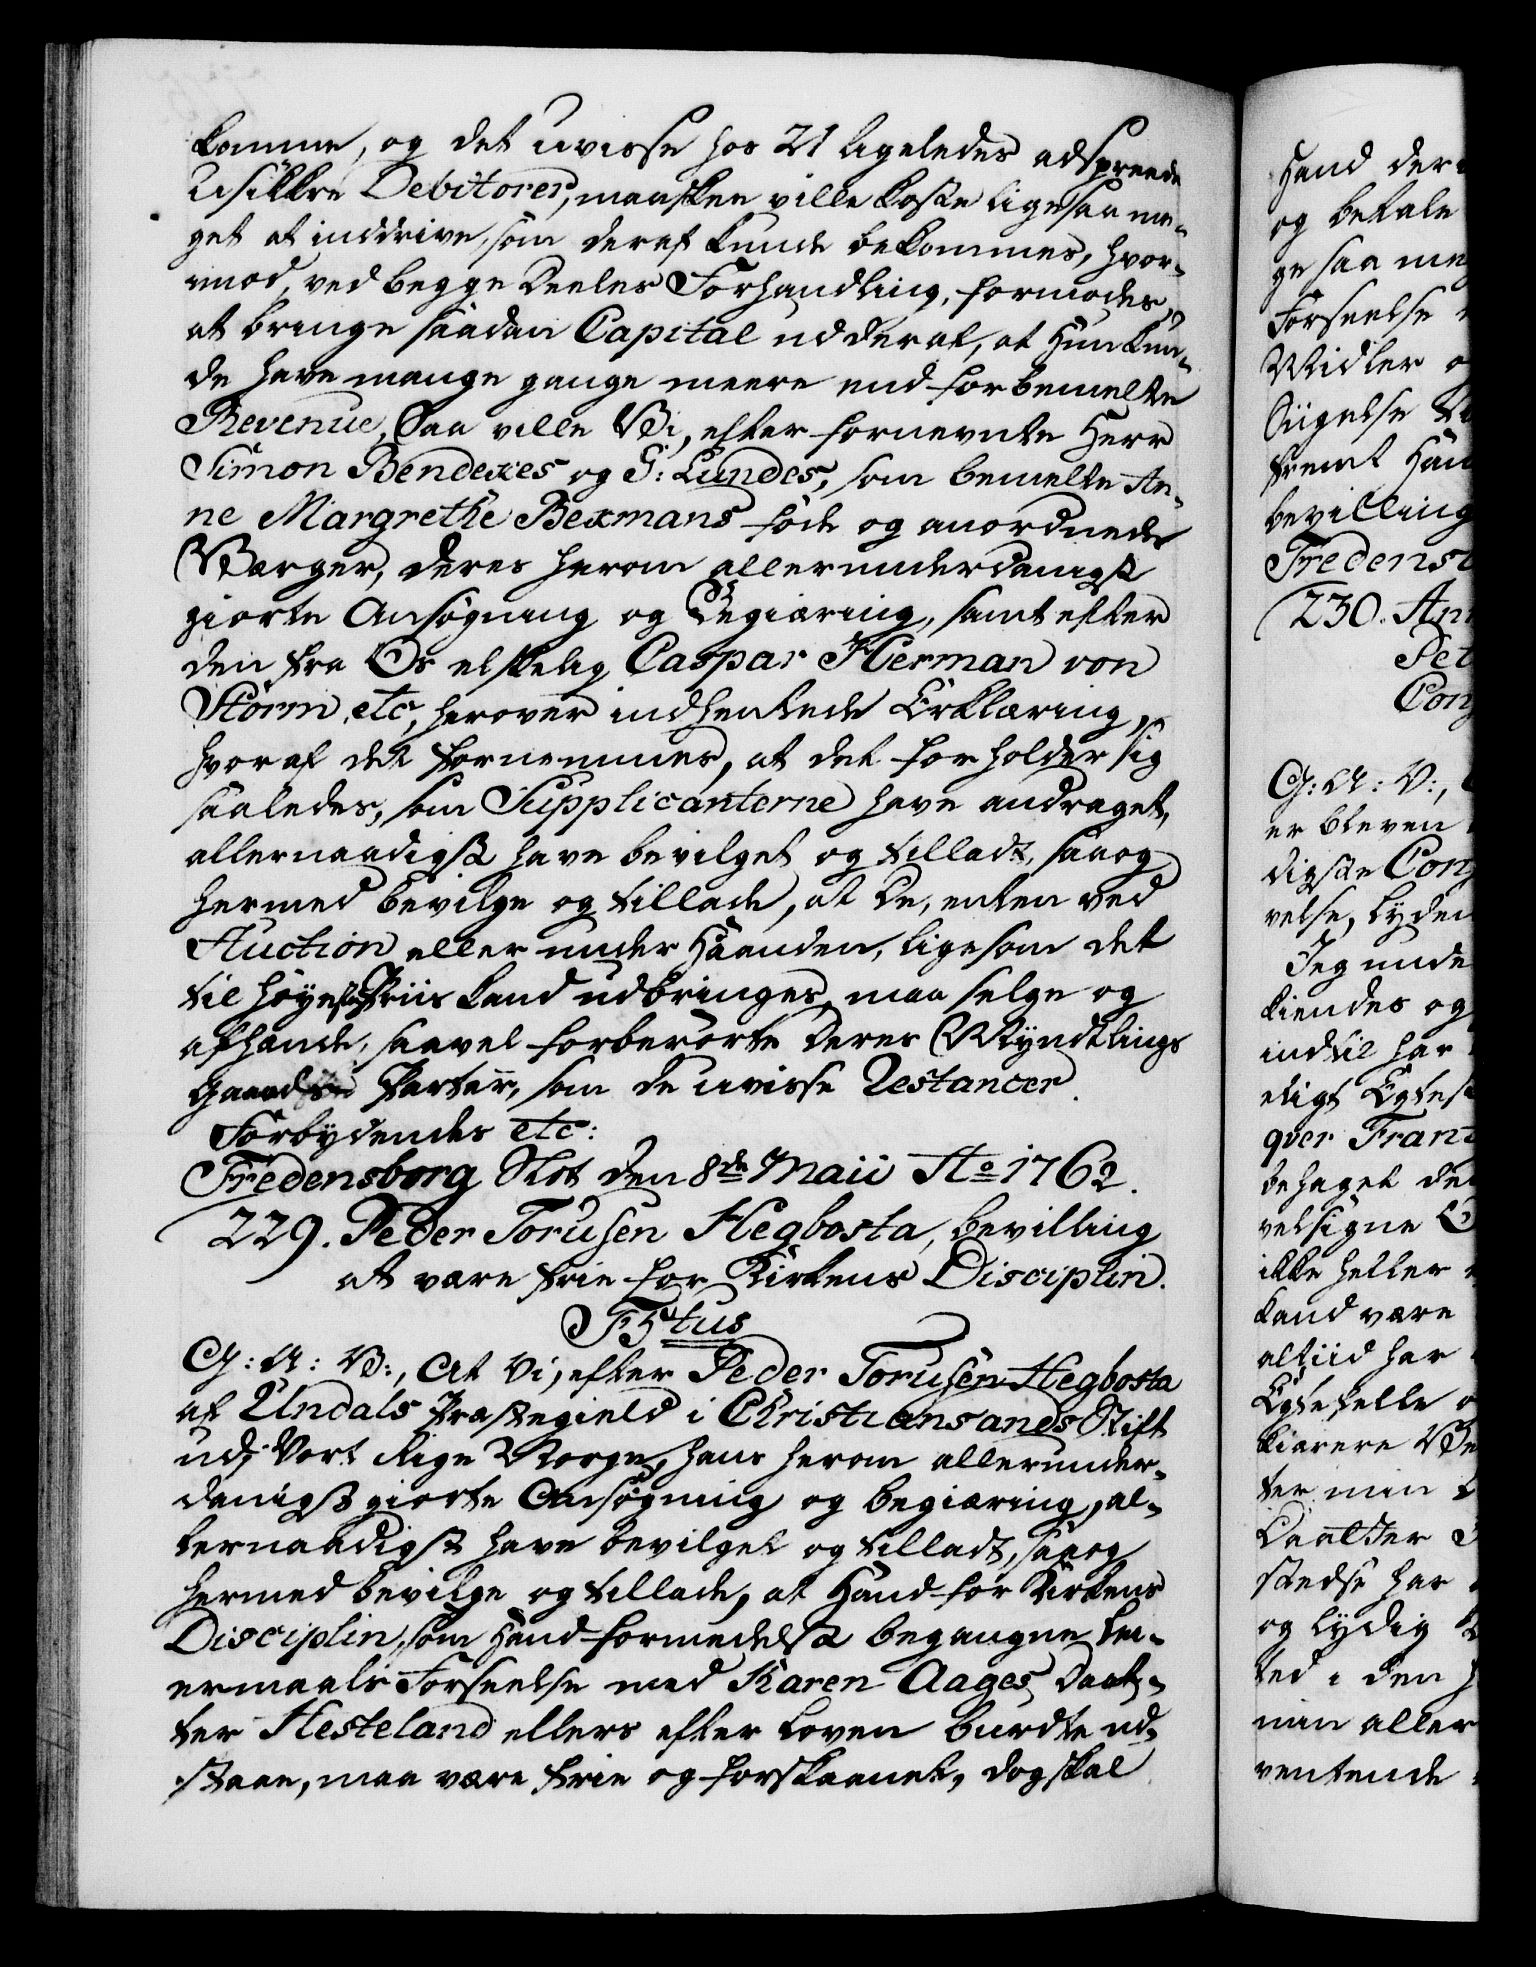 komme, og det uvisse hos 21 ligeledes adspreede
Usikkre Debitorer, maaskee ville koste ligesaa me-
get at inddrive, som deraf kunde bekommes, hvor-
imod, ved begge Deeles Forhandling, formodes,
at bringe saadan Capital ud deraf, at Hun kun-
de have mange gange meere end forbemelte
Revenue, Saa ville Vi, efter fornevnte Herr
Simon Bendexes og G: Lundes, som bemelte An-
ne Margrethe Bexmans føde og anordnede
Værger, deres herom allerunderdanigst
giorte Ansøgning og Begiæring, samt efter
den fra Os elskelig Caspar Herman von
Storm etc, herover indhentede Erklæring,
hvoraf det fornemmes, at det forholder sig
saaledes, som Supplicanterne have andraget,
allernaadigst have bevilget og tilladt, saa og
hermed bevilge og tillade, at De, enten ved
Auction eller under Haanden, ligesom det
til høyeste Priis kand udbringes, maa selge og
afhænde, saavel forberørte deres Myndtlings
Gaard Parter, som de uvisse Restancer.
Forbydendes etc:
Fredensborg Slot den 8de Maii Ao 1762.
229. Peder Torusen Hegbosta, bevilling
at være frie for Kirkens Disciplin.
F5tus
G: A: V:, At Vi, efter Peder Torusen Hegbosta
af Undals Præstegield i Christiansands Stift
udj Vort Rige Norge, hans herom allerunder-
danigst giorte Ansøgning og begiæring, al-
lernaadigst have bevilget og tilladt, saa og
hermed bevilge og tillade, at Hand for Kirkens
Disciplin, som Hand formedelst begangne Lei-
ermaals Forseelse med Karen Aages Daat-
ter Hesteland ellers efter Loven burdte ud-
staae, maa være frie og forskaanet, dog skal
Hand der
og betale
ge saa me
Forseelse
Midler o
Siigelse
fremt Han
bevilling
Fredens
230. An
Pet
Con
G: A: V:,
er bleven
digste Con
velse, lyden
Jeg unde
kiendes og
indtil har
eligt Egtes
qver Fran
behaget de
velsigne
ikke heller
kand være
altiid har
Egtefelle o
kiærere Ve
ter min
Daatter
stedse har
og lydig
ted i den
min aller
ventende